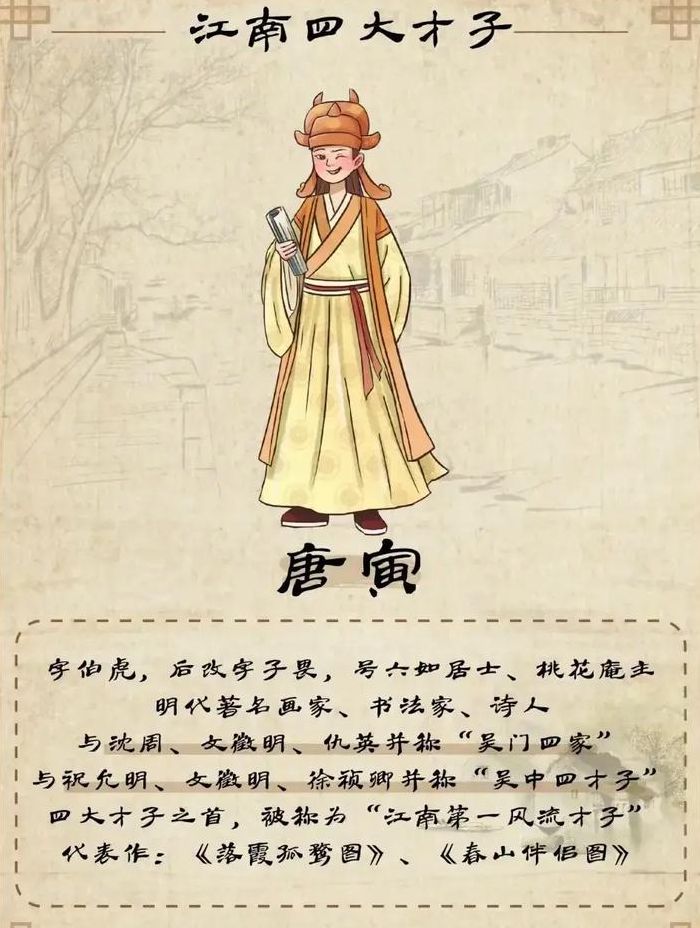 江南四大才子
唐寅
字伯虎，后改字子畏，号六如居士、桃花庵主
明代著名画家、书法家、诗人
与沈周、文徵明、仇英并称“吴门四家”
与祝允明、文徵明、徐祯卿并称“吴中四才子”
四大才子之首，被称为“江南第一风流才子”
代表作：《落霞孤鹜图》、《春山伴侣图》